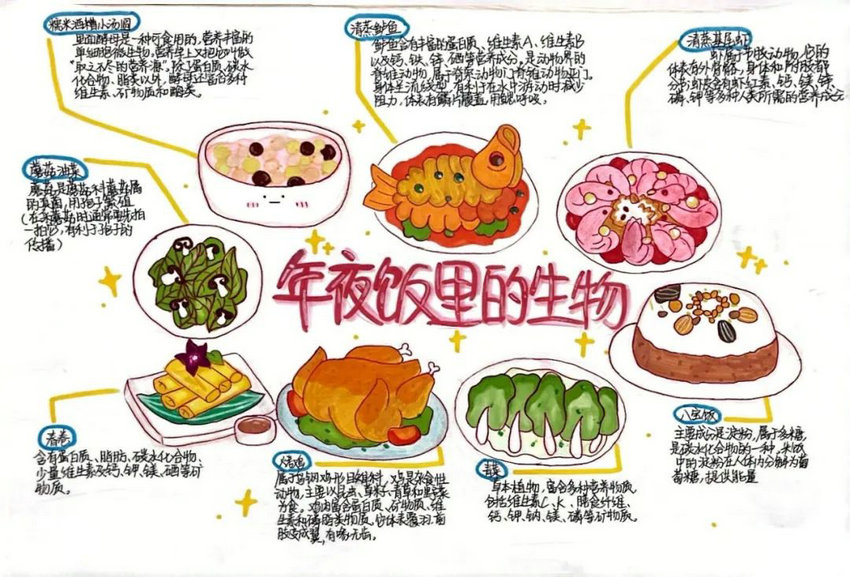 糯米酒糟小汤圆
里面酵母是一种可食用的,营养丰富的
单细胞微生物,营养学上又把它叫做
"取之不尽的营养源"。除了蛋白质、碳水
化合物、脂类以外,酵母还富含多种
维生素、矿物质和酶类。
清蒸鲈鱼
鲈鱼含有丰富的蛋白质、维生素A、维生素B
以及钙、铁、锌、硒等营养成分,是动物界的
脊椎动物,属于脊索动物门脊椎动物亚门。
身体呈流线型,有利于在水中游动时减少
阻力,体表有鳞片覆盖,用鳃呼吸。
清蒸基尾虾
虾属于节肢动物,它的
体表有外骨骼,身体和附肢都
分节。虾皮含有虾红素、钙、镁、铁、
磷、钾等多种人类所需的营养成元
蘑菇油菜
蘑菇是蘑菇科蘑菇属
的真菌,用孢子繁殖
(在采蘑菇时通常要先拍
一拍它,有利于孢子的
传播)
年夜饭里的生物
春卷
含有蛋白质、脂肪、碳水化合物、
少量维生素及钙、钾、镁、硒等矿
物质。
烤鸡
属于鸟纲鸡形目雉科,鸡是杂食性
动物,主要以昆虫、草籽、青草和野菜
为食。鸡肉富含蛋白质、矿物质、维
生素和磷脂类物质,它体表覆羽,前
肢变成翼,有喙无齿。
青菜
草本植物,富含多种营养物质
包括维生素C、K、膳食纤维、
钙、钾、钠、镁、磷等矿物质。
八宝饭
主要成分是淀粉,属于多糖
是碳水化合物的一种,米饭
中的淀粉在人体内分解为葡
萄糖,提供能量